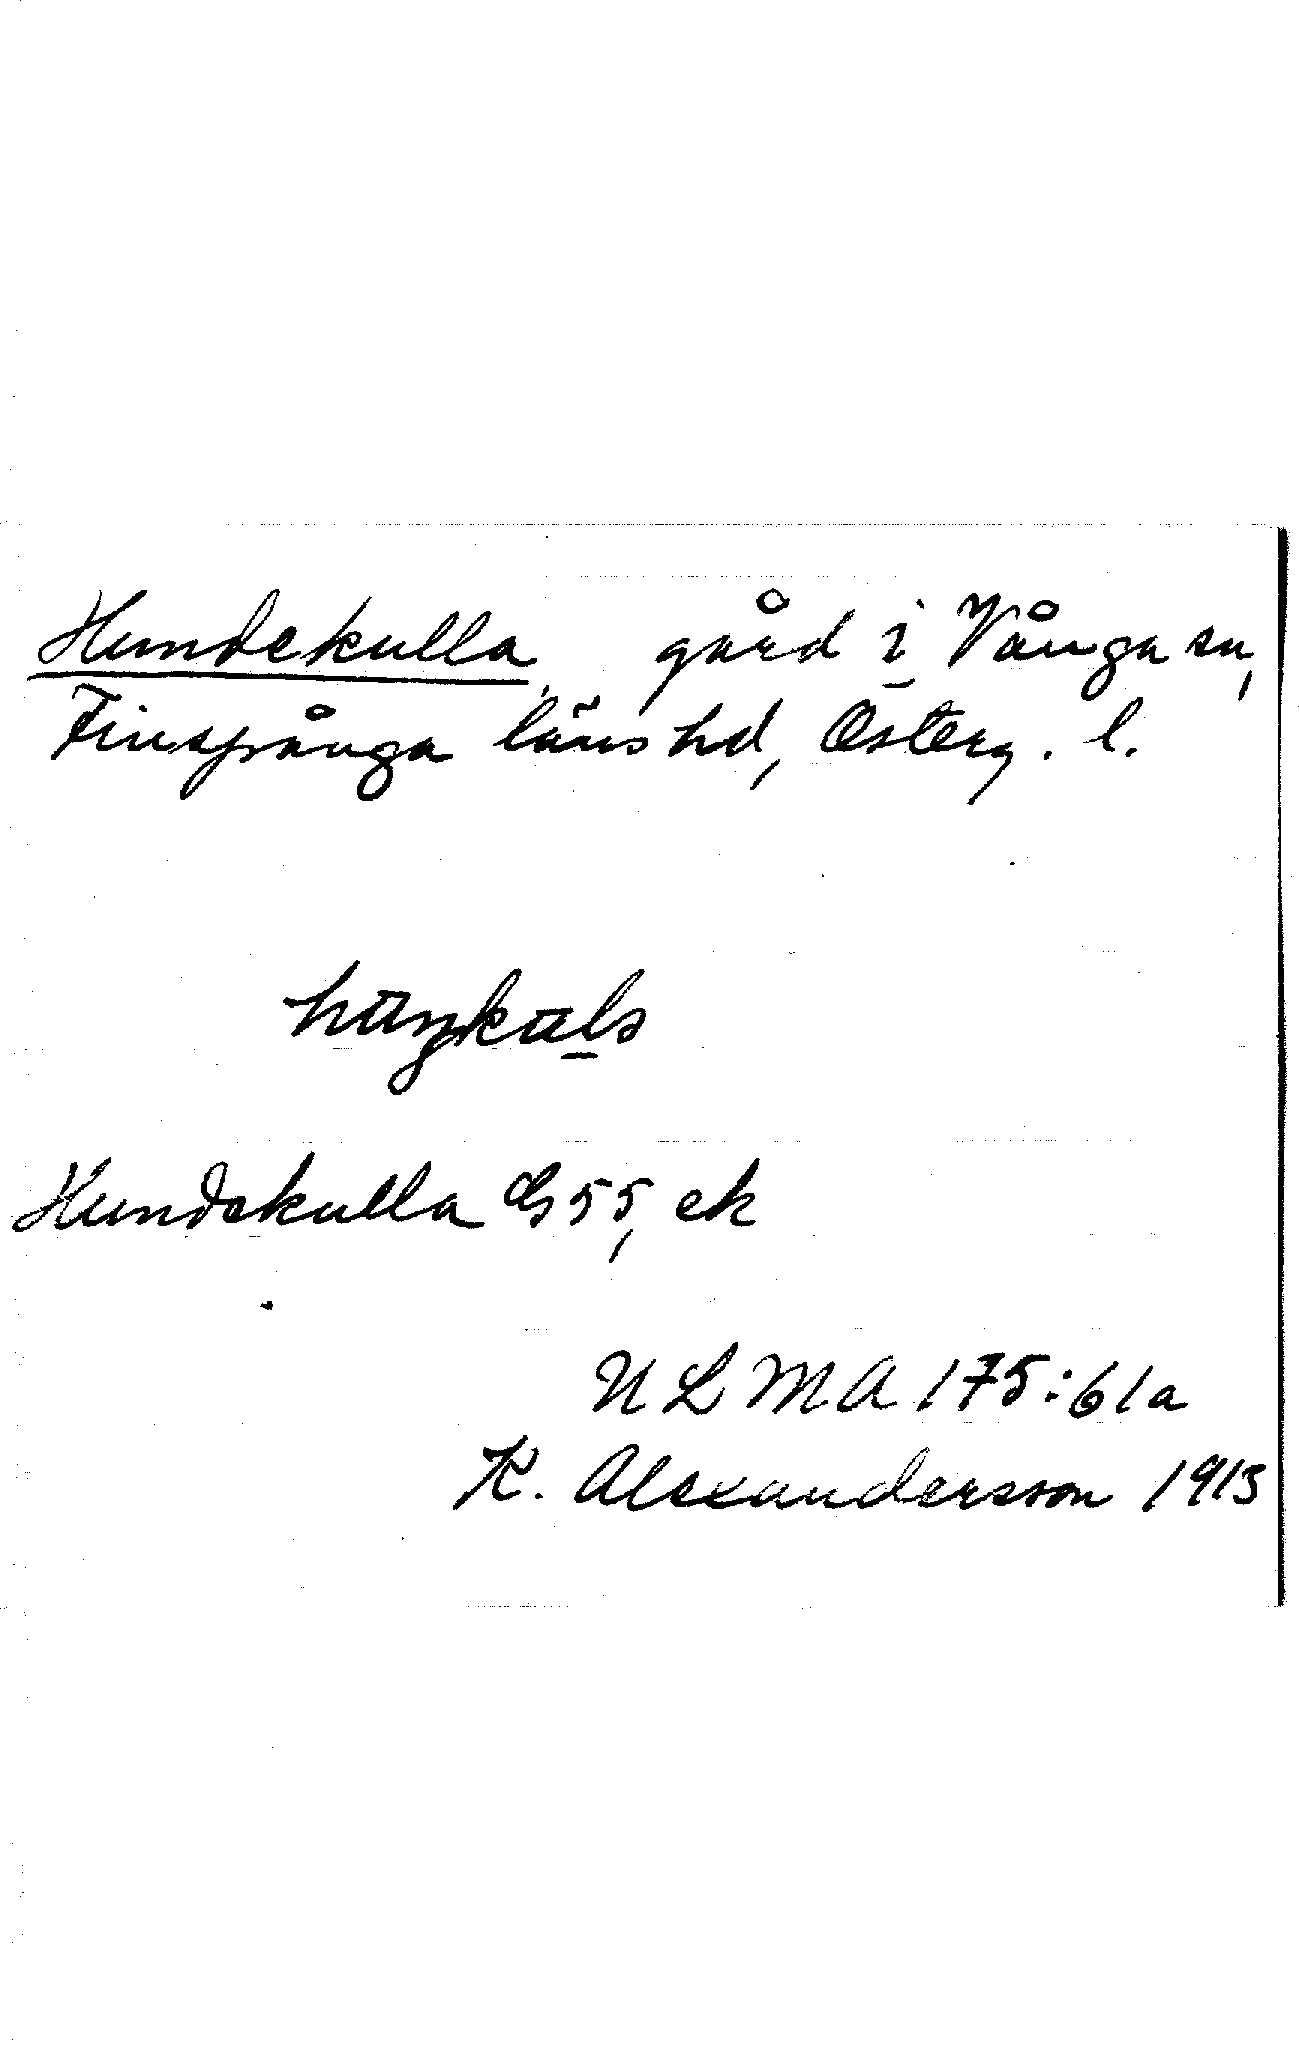 Hundekulla gård i Vånga sn,
Finspånga läns hd, Österg. l.
Hundekulla GS 55, ek
ULMA 175:61a
K. Alexandersson 1913